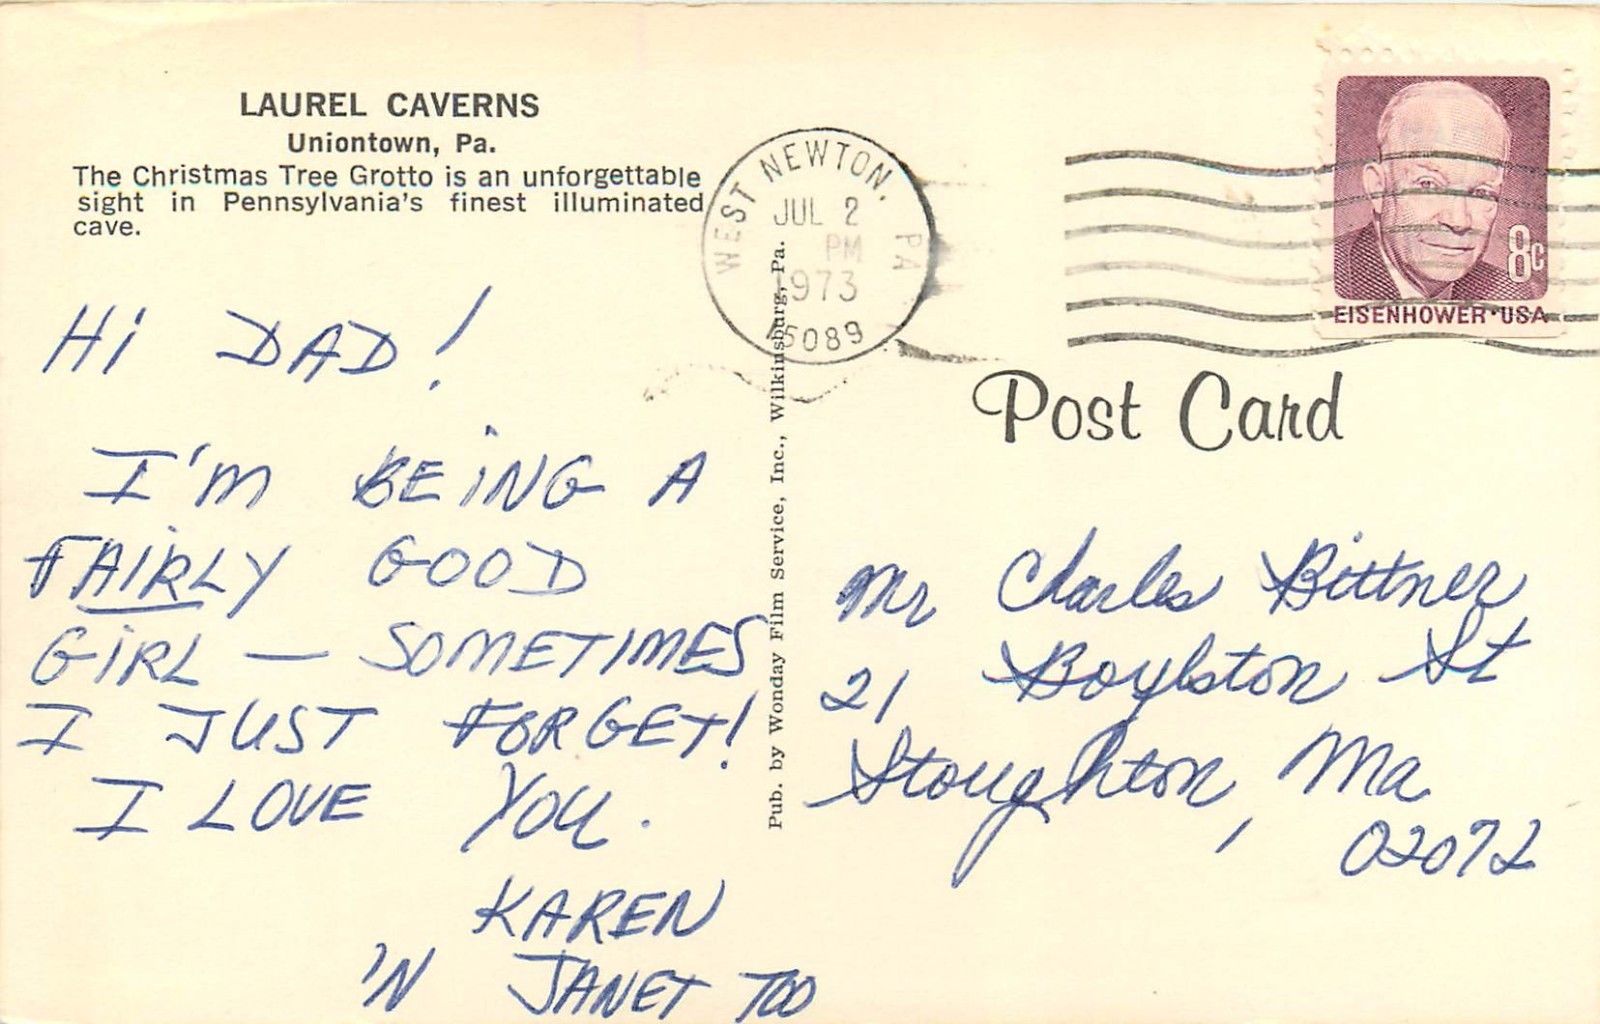 LAUREL CAVERNS
Uniontown, Pa.
The Christmas Tree Grotto is an unforgettable
sight in Pennsylvania's finest illuminated
cave.
HI DAD!
I'M BEING A
FAIRLY GOOD
GIRL — SOMETIMES
I JUST FORGET!
I LOVE YOU.
KAREN
'N JANET TOO
Pub. by Wonday Film Service, Inc., Wilkinsburg, Pa.
WEST NEWTON, PA
JUL 2
PM
1973
15089
8c
EISENHOWER·USA
Post Card
Mr Charles Bittner
21 Boylston St
Stoughton, Ma
02072